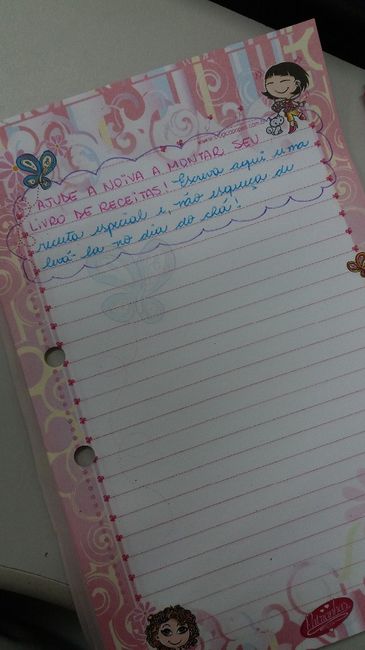 AJUDE A NOIVA A MONTAR SEU
LIVRO DE RECEITAS! Escreva aqui uma
receita especial e, não esqueça de
levá-la no dia do chá!